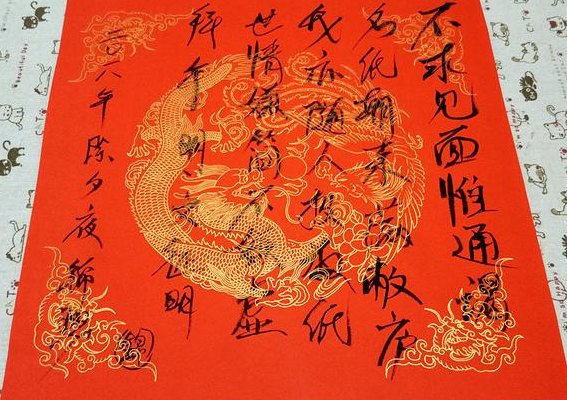 不求见面惟通谒
名纸朝来满敝庐
我亦随人投数纸
世情嫌简不嫌虚
拜年 明 文徵明
二〇一八年除夕夜